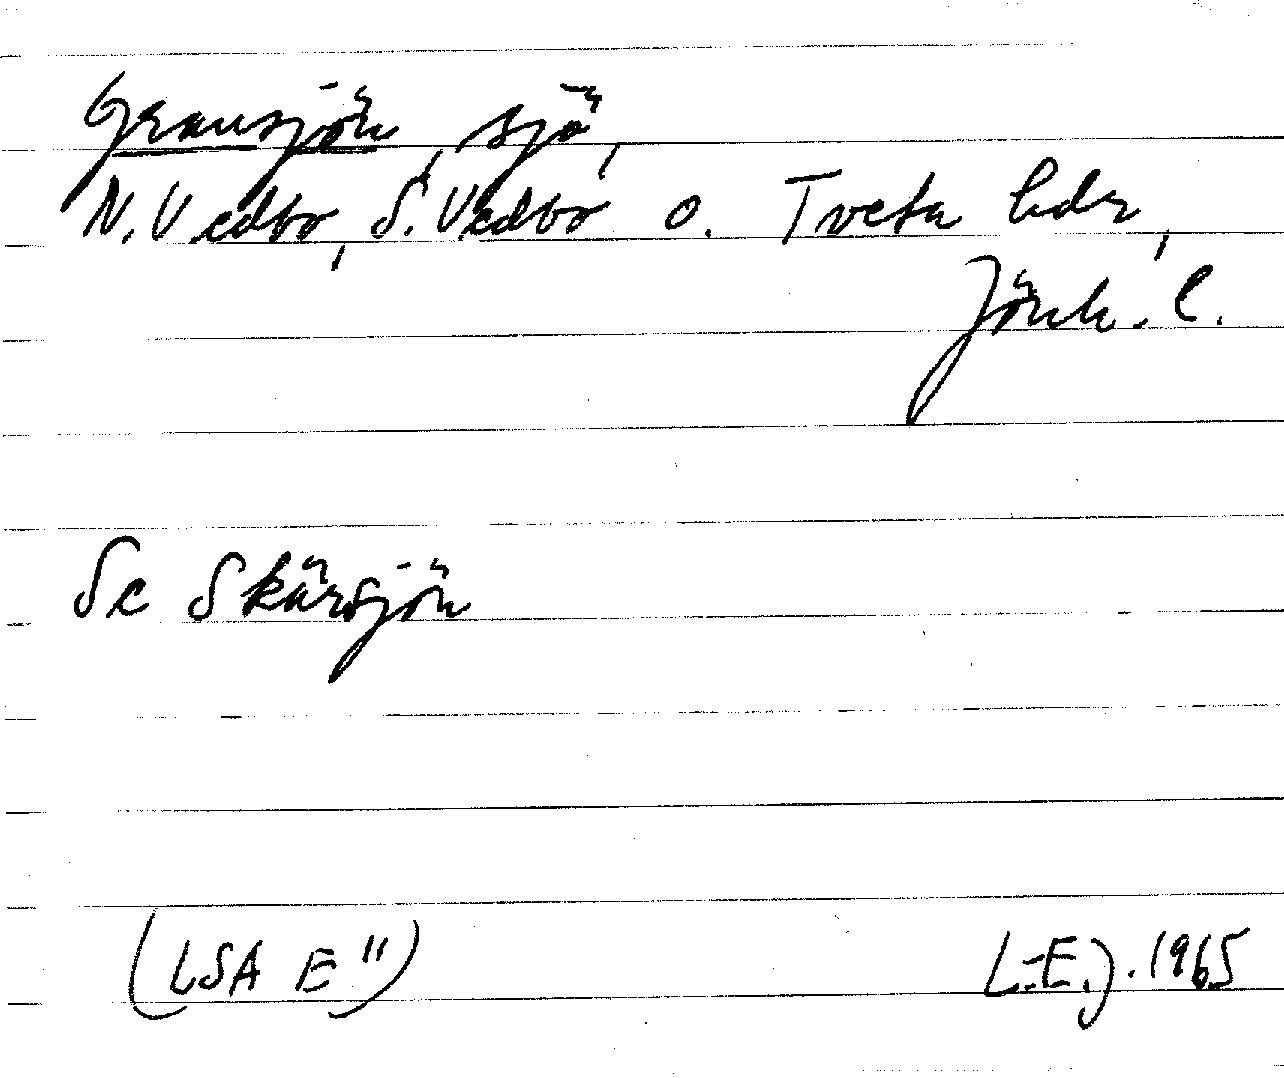 Gransjön, sjö,
N. Vedbo, S. Vedbo o. Tveta hdr,
Jönk. l.
Se Skärsjön
(LSA E")
L.-E. J. 1965